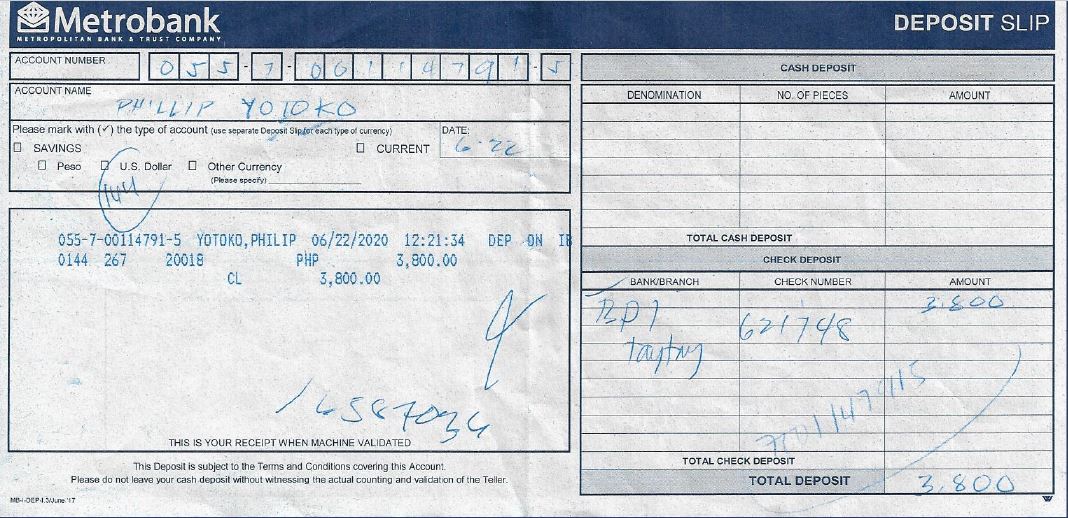 Metrobank
METROPOLITAN BANK & TRUST COMPANY
DEPOSIT SLIP
ACCOUNT NUMBER
055-7-06114791-5
ACCOUNT NAME
PHILLIP YOTOKO
Please mark with (✓) the type of account (use separate Deposit Slip for each type of currency)
SAVINGS
CURRENT
Peso
U.S. Dollar
Other Currency
(Please specify)
DATE:
6-22
144
055-7-00114791-5 YOTOKO,PHILIP 06/22/2020 12:21:34 DEP ON IB
0144 267 20018 PHP 3,800.00
CL 3,800.00
THIS IS YOUR RECEIPT WHEN MACHINE VALIDATED
This Deposit is subject to the Terms and Conditions covering this Account.
Please do not leave your cash deposit without witnessing the actual counting and validation of the Teller.
MB-I-DEP-I.3/June '17
CASH DEPOSIT
DENOMINATION NO. OF PIECES AMOUNT
TOTAL CASH DEPOSIT
CHECK DEPOSIT
BANK/BRANCH CHECK NUMBER AMOUNT
BPI 621748 3,800
Taytay
TOTAL CHECK DEPOSIT
TOTAL DEPOSIT 3,800